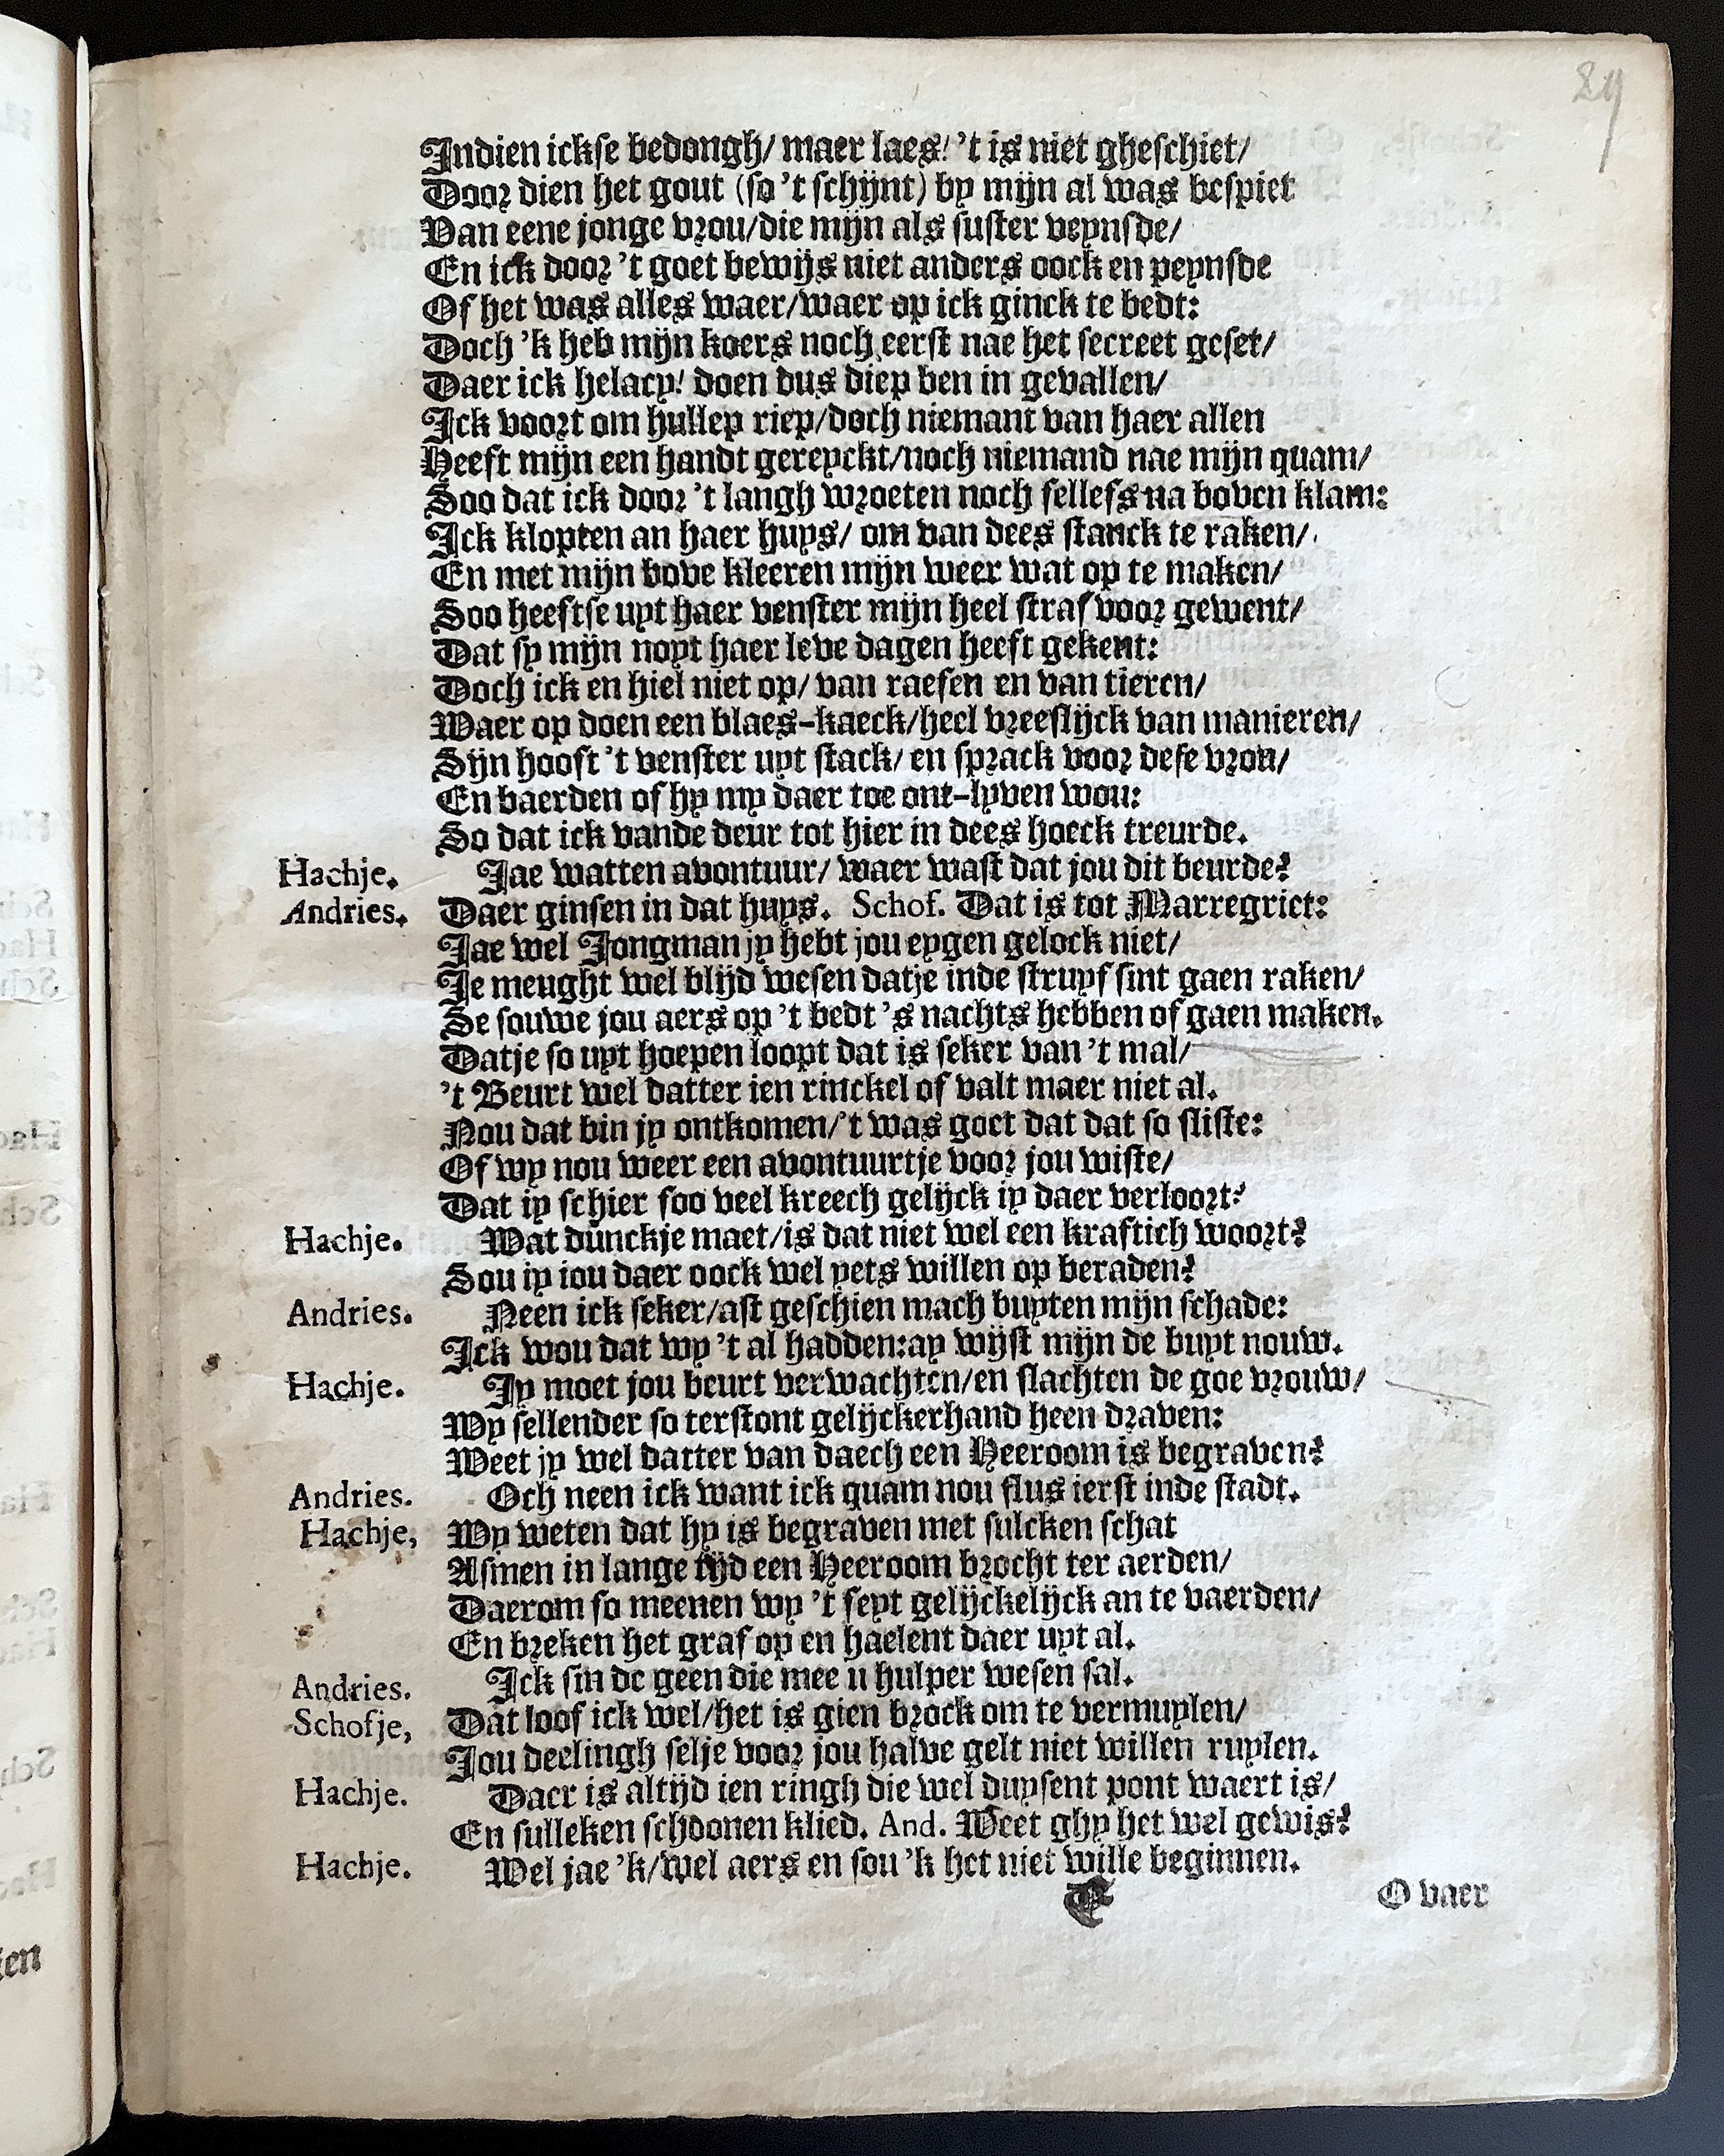 29
Indien ickse bedongh/ maer laes! 't is niet gheschiet/
Door dien het gout (so 't schijnt) by mijn al was bespiet
Van eene jonge vrou/die mijn als suster veynsde/
En ick door 't goet bewijs niet anders oock en peynsde
Of het was alles waer/waer op ick ginck te bedt:
Doch 'k heb mijn koers noch eerst nae het secreet geset/
Daer ick helacy! doen dus diep ben in gevallen/
Ick voort om hullep riep/doch niemant van haer allen
Heeft mijn een handt gereyckt/noch niemand nae mijn quam/
Soo dat ick door 't langh wroeten noch sellefs na boven klam:
Ick klopten an haer huys/ om van dees stanck te raken/
En met mijn bove kleeren mijn weer wat op te maken/
Soo heeftse uyt haer venster mijn heel straf voor gewent/
Dat sy mijn noyt haer leve dagen heeft gekent:
Doch ick en hiel niet op/ van raesen en van tieren/
Waer op doen een blaes-kaeck/heel vreeslijck van manieren/
Sijn hooft 't venster uyt stack/ en sprack voor dese vrou/
En baerden of hy my daer toe ont-lyven wou:
So dat ick vande deur tot hier in dees hoeck treurde.
Hachje. Jae watten avontuur/ waer wast dat jou dit beurde?
Andries. Daer ginsen in dat huys. Schof. Dat is tot Marregriet:
Jae wel Jongman jy hebt jou eygen gelock niet/
Je meught wel blijd wesen datje inde struyf sint gaen raken/
Se souwe jou aers op 't bedt 's nachts hebben of gaen maken.
Datje so uyt hoepen loopt dat is seker van 't mal/
't Beurt wel datter ien rinckel of valt maer niet al.
Nou dat bin jy ontkomen/'t was goet dat dat so sliste:
Of wy nou weer een avontuurtje voor jou wiste/
Dat iy schier soo veel kreech gelijck iy daer verloort?
Hachje. Wat dunckje maet/is dat niet wel een kraftich woort?
Sou iy iou daer oock wel yets willen op beraden?
Andries. Neen ick seker/ast geschien mach buyten mijn schade:
Ick wou dat wy 't al hadden:ay wijst mijn de buyt nouw.
Hachje. Jy moet jou beurt verwachten/en slachten de goe vrouw/
Wy sellender so terstont gelijckerhand heen draven:
Weet jy wel datter van daech een Heeroom is begraven?
Andries. Och neen ick want ick quam nou flus ierst inde stadt.
Hachje, Wy weten dat hy is begraven met sulcken schat
Asmen in lange tijd een Heeroom brocht ter aerden/
Daerom so meenen wy 't seyt gelijckelijck an te vaerden/
En breken het graf op en haelent daer uyt al.
Andries. Ick sin de geen die mee u hulper wesen sal.
Schofje, Dat loof ick wel/het is gien brock om te vermuylen/
Jou deelingh selje voor jou halve gelt niet willen ruylen.
Hachje. Daer is altijd ien ringh die wel duysent pont waert is/
En sulleken schoonen klied. And. Weet ghy het wel gewis?
Hachje. Wel jae 'k/wel aers en sou 'k het niet wille beginnen.
O vaer